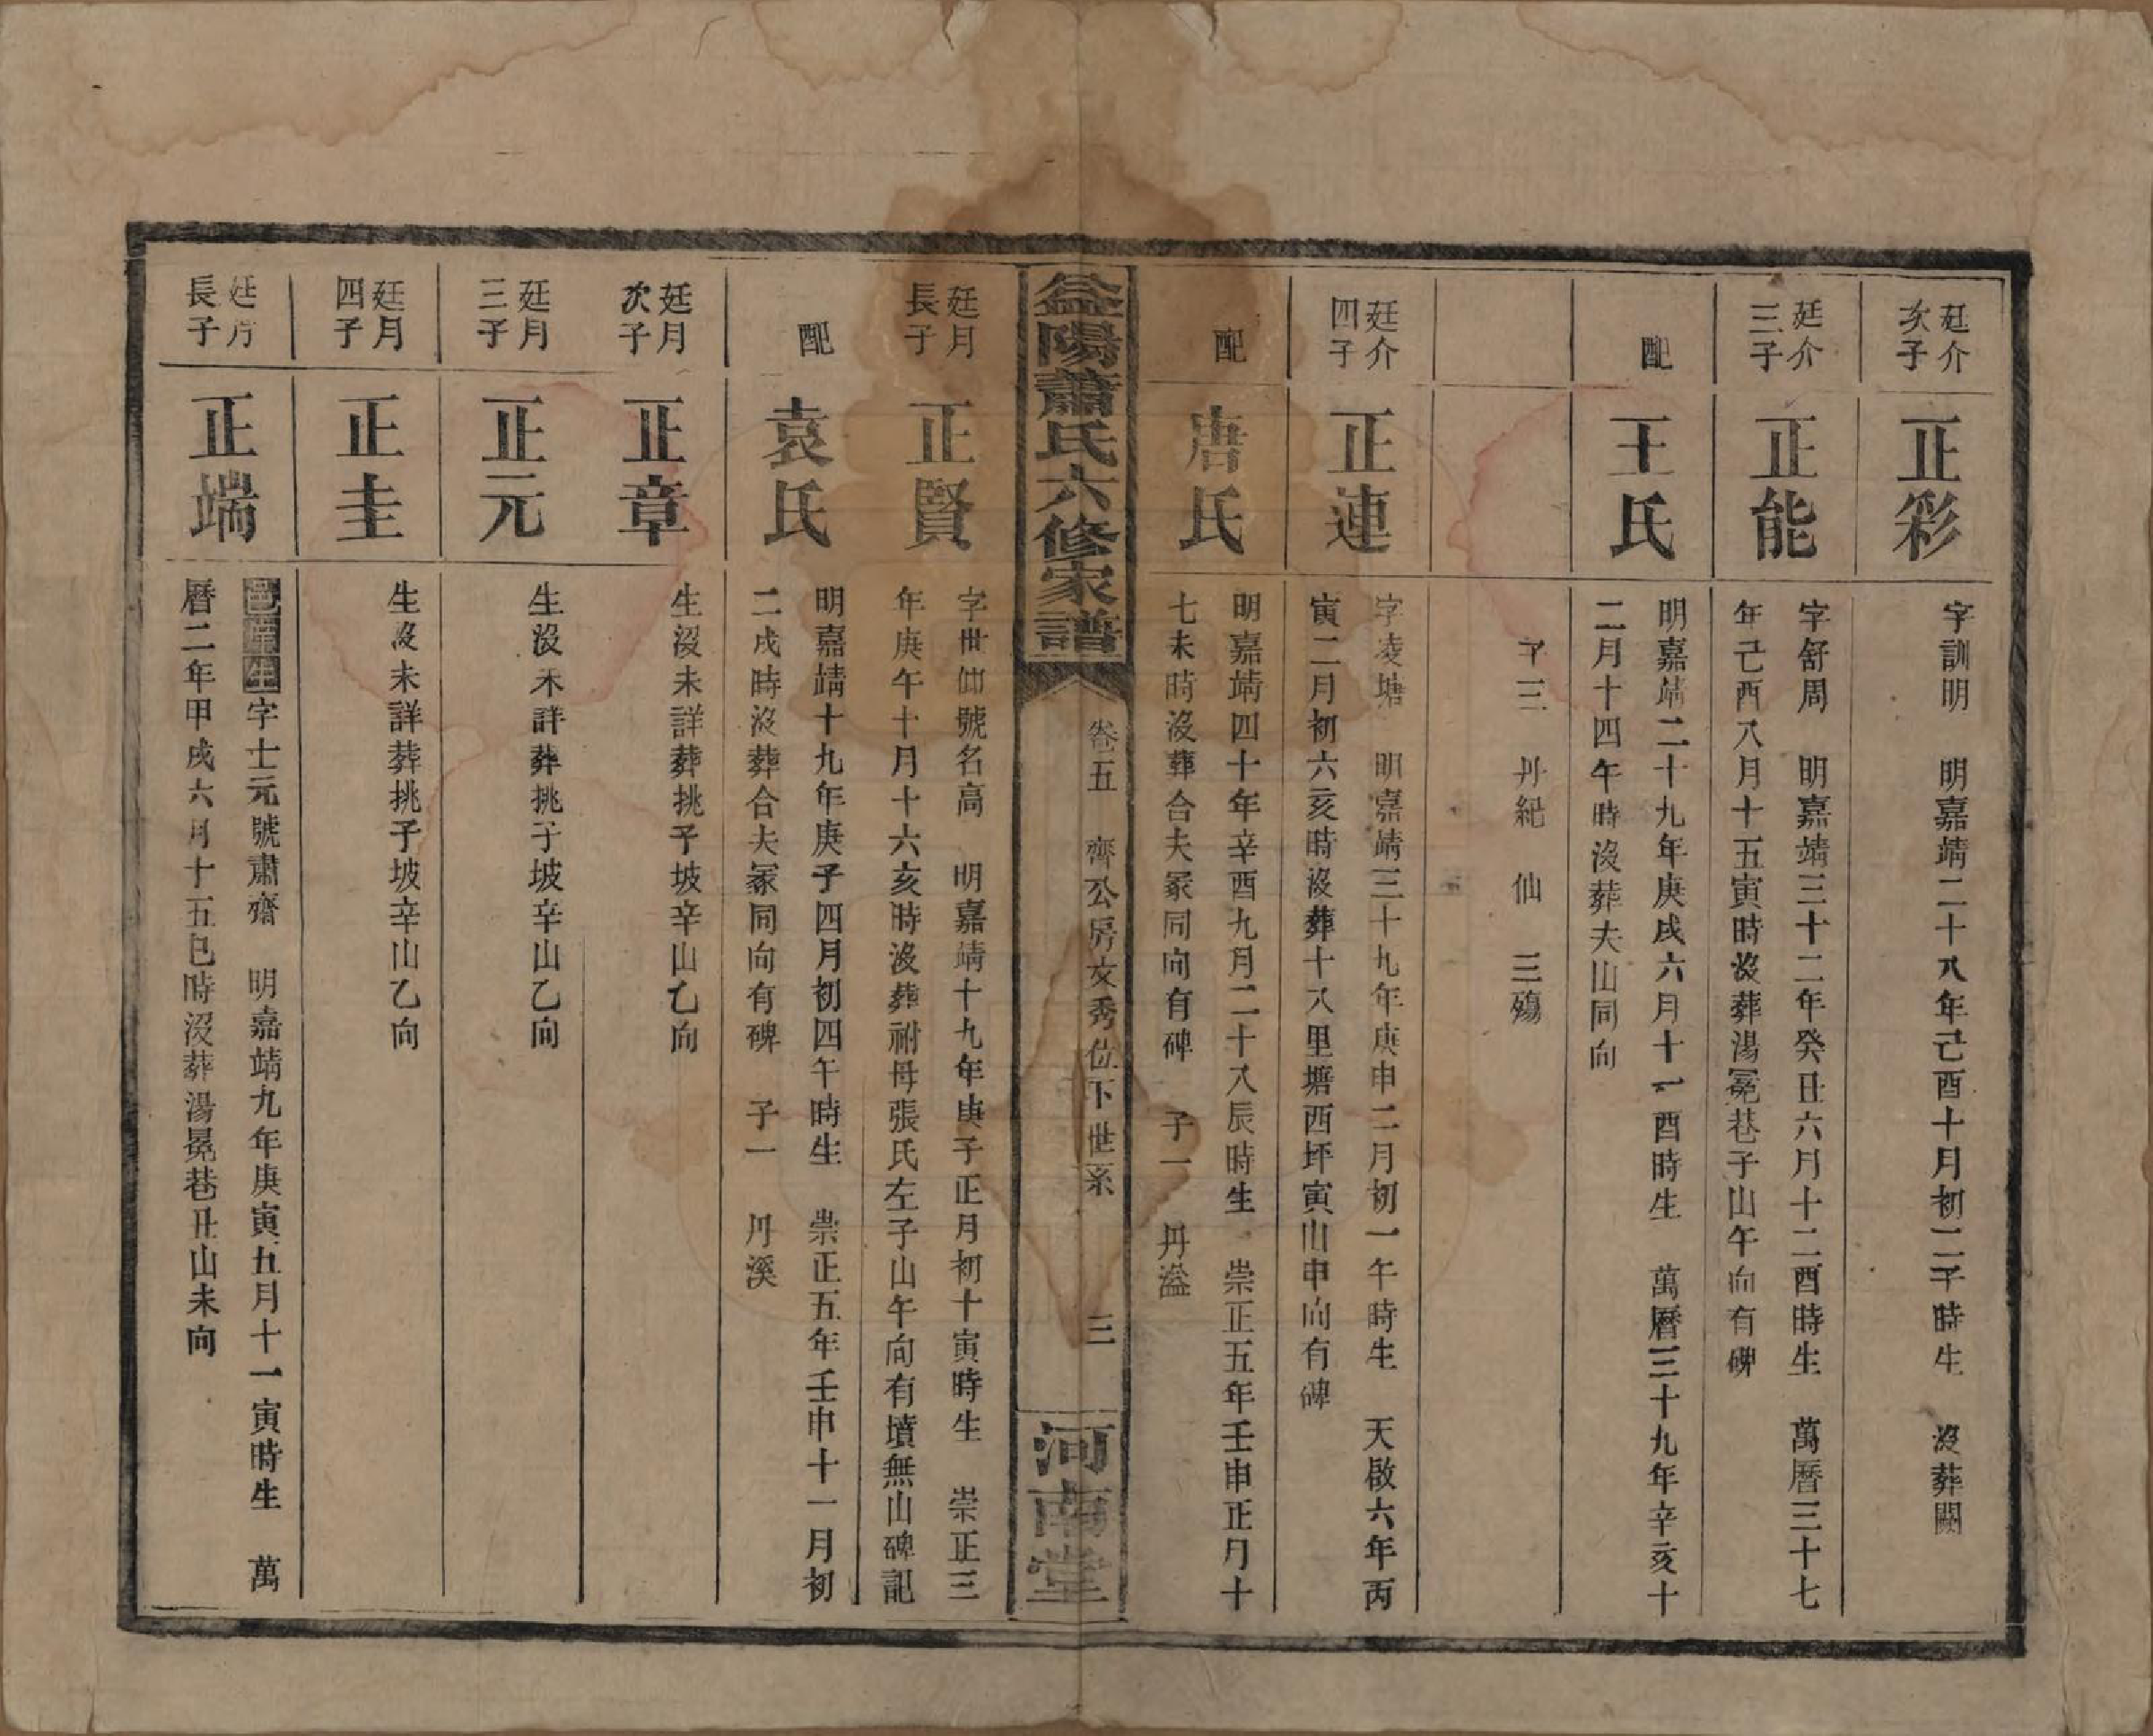 廷介
次子
正彩
字訓明　明嘉靖二十八年己酉十月初二子時生　沒葬闕
廷介
三子
正能
字舒周　明嘉靖三十二年癸丑六月十二酉時生　萬曆三十七
年己酉八月十五寅時沒葬湯冕巷子山午向有碑
配
王氏
明嘉靖二十九年庚戌六月十一酉時生　萬曆三十九年辛亥十
二月十四午時沒葬夫山同向
子三　丹紀　仙　三殤
廷介
四子
正連
字凌塘　明嘉靖三十九年庚申二月初一午時生　天啟六年丙
寅二月初六亥時沒葬十八里塘西坪寅山申向有碑
配
唐氏
明嘉靖四十年辛酉九月二十八辰時生　崇正五年壬申正月十
七未時沒葬合夫冢同向有碑　子一　丹溢
益陽蕭氏六修家譜
卷五　齊公房文秀位下世系　三
河南堂
廷月
長子
正賢
字世仰號名高　明嘉靖十九年庚子正月初十寅時生　崇正三
年庚午十月十六亥時沒葬祔母張氏左子山午向有墳無山碑記
配
袁氏
明嘉靖十九年庚子四月初四午時生　崇正五年壬申十一月初
二戌時沒葬合夫冢同向有碑　子一　丹溪
廷月
次子
正章
生沒未詳葬挑子坡辛山乙向
廷月
三子
正元
生沒未詳葬挑子坡辛山乙向
廷月
四子
正圭
生沒未詳葬挑子坡辛山乙向
廷月
長子
正端
邑庠生字士元號肅齋　明嘉靖九年庚寅五月十一寅時生　萬
曆二年甲戌六月十五巳時沒葬湯冕巷丑山未向